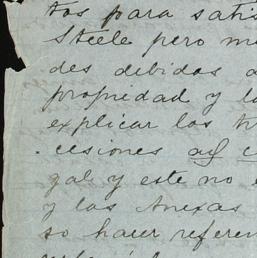 tos para satis
Steele pero m
des debidos a
propiedad y l
explicar los tr
cesiones
gal y este no
y las Anexas
so hacer referen